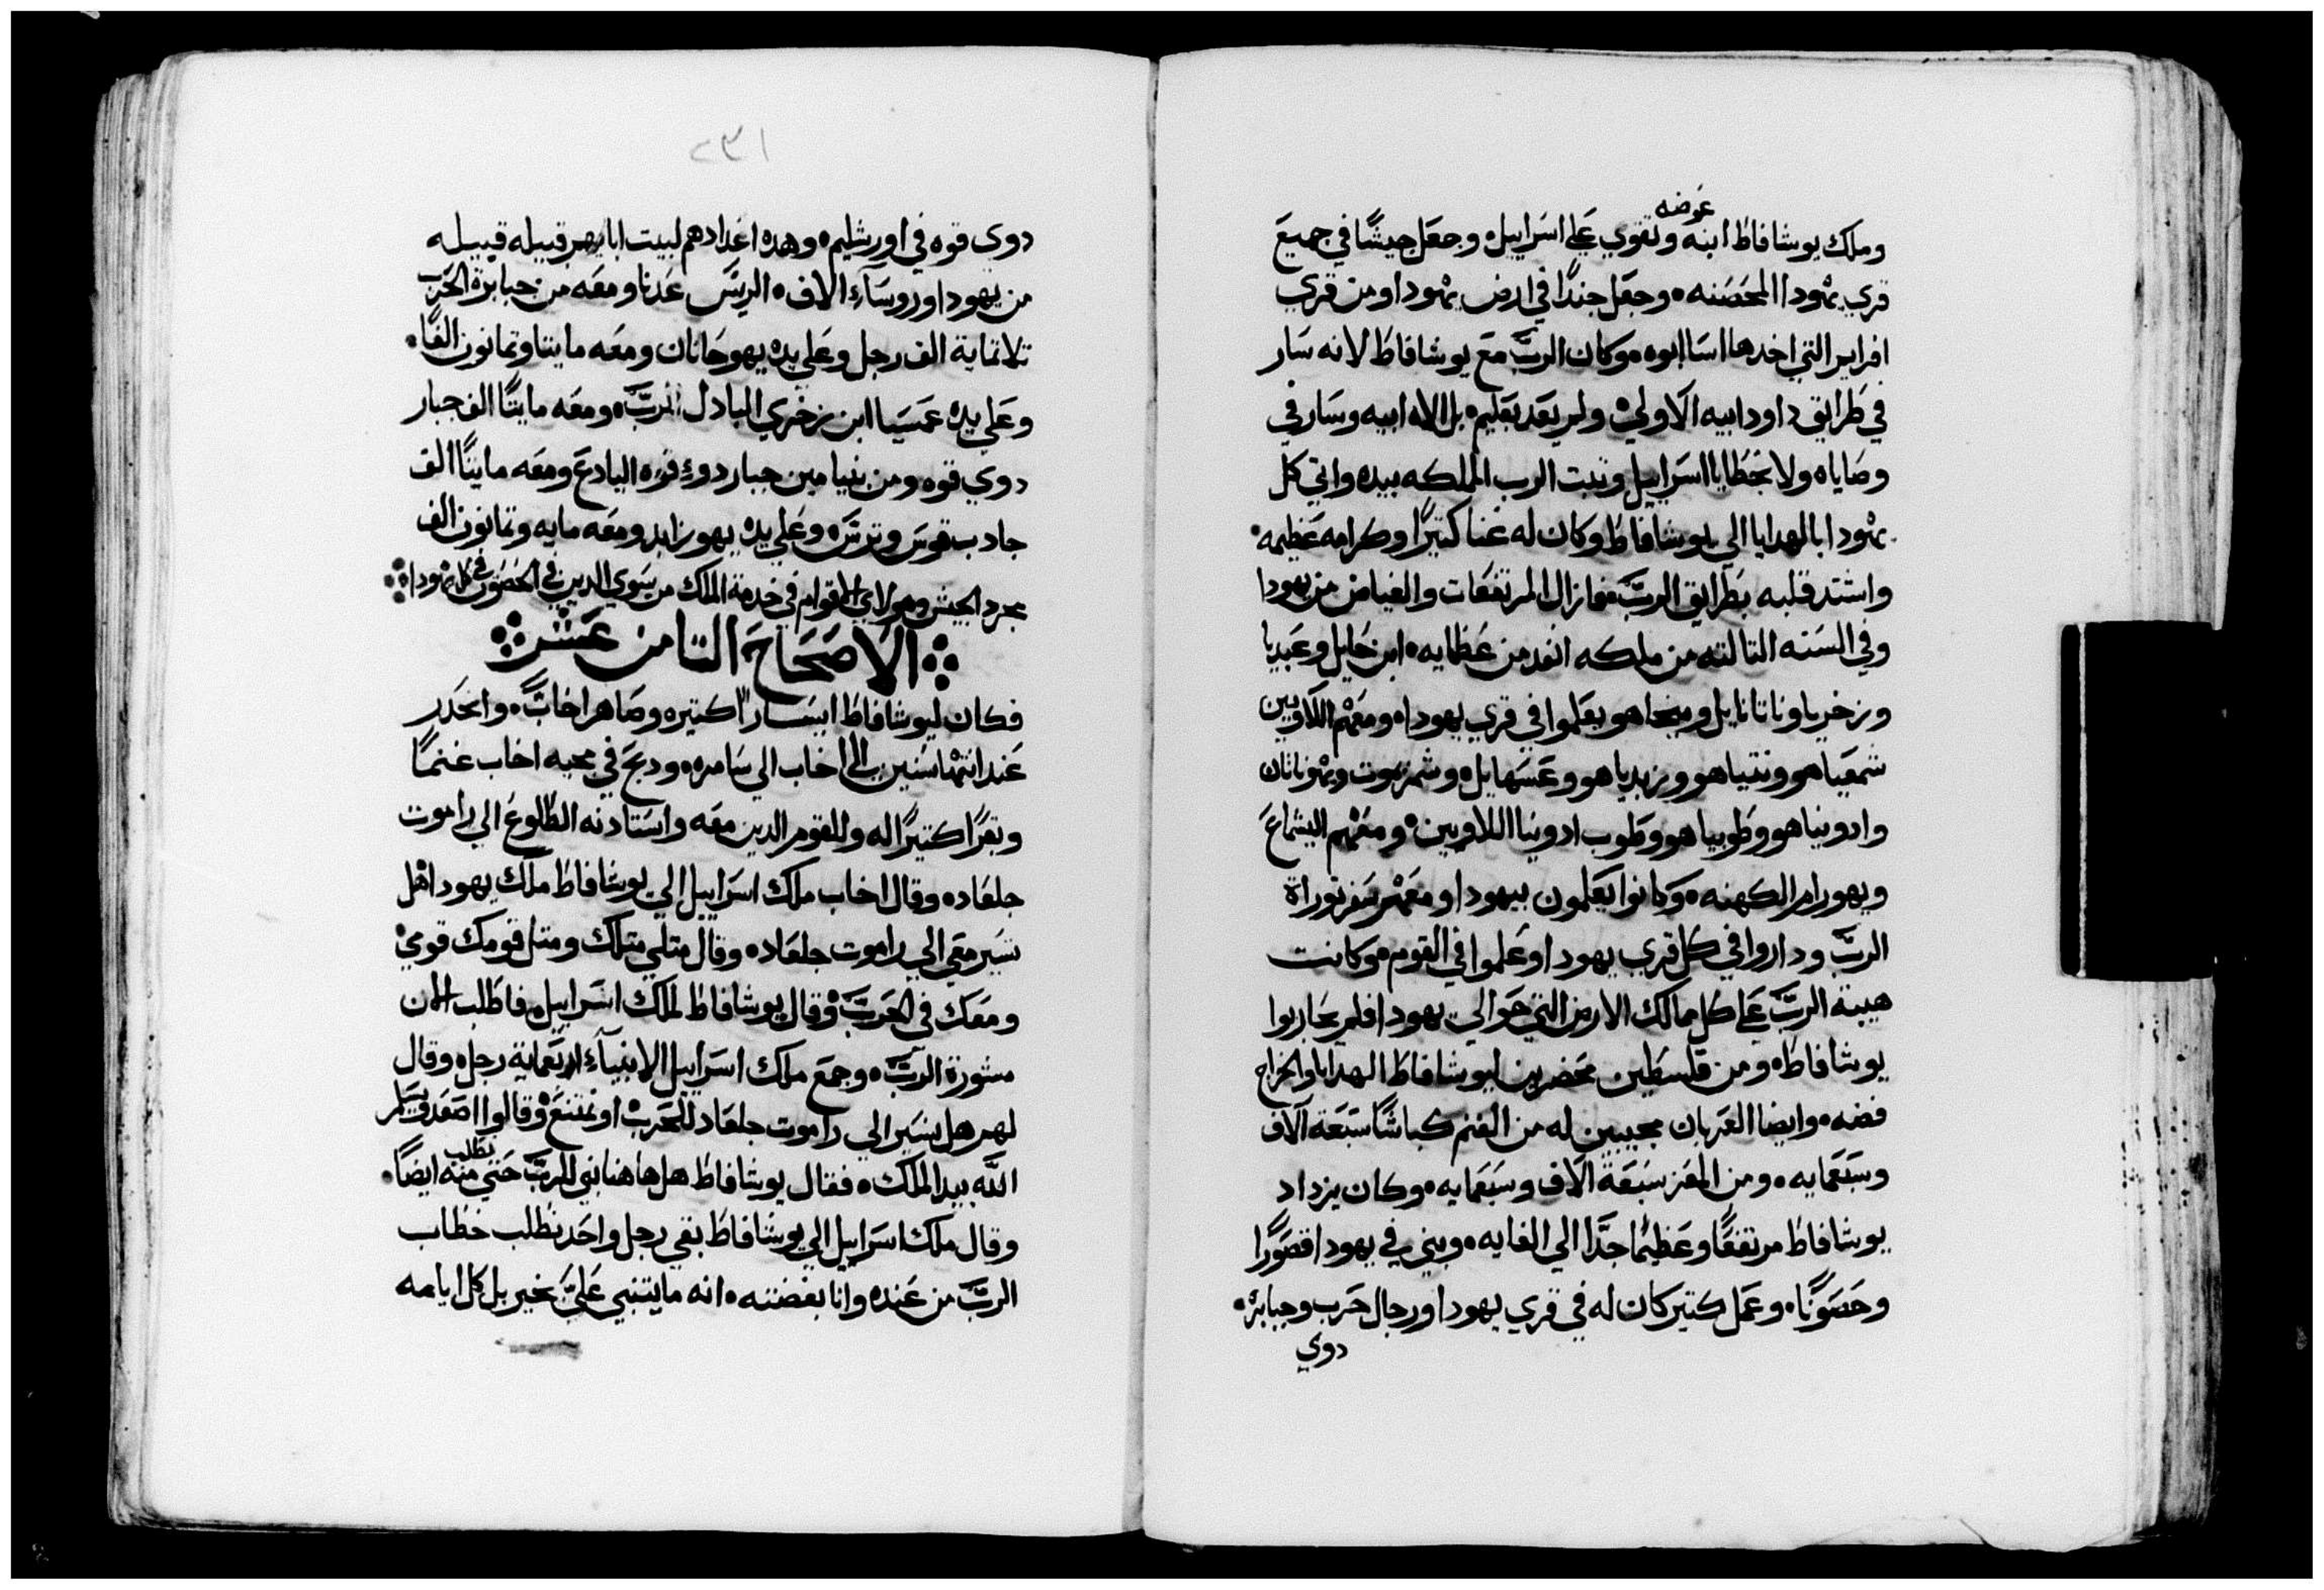 عوضه
وملك يوشافاط ابنه وتقوي علي اسراييل وجعل جيشًا في جميع
قري يهودا المحصنه وجعل جندًا في ارض يهودا ومن قري
افرايم التي اخدها اسا ابوه وكان الربّ مع يوشافاط لانه سار
في طرايق داود ابيه الاولي ولم يعد بعليم بل الاه ابيه وسار في
وصاياه ولا بخطايا اسراييل وتبت الرب المملكه بيده واتي كل
يهودا بالهدايا الي يوشافاط وكان له غنا كتيرًا وكرامه عظيمه
واشتد قلبه بطرايق الربّ فما زال المرتفعات والغياض من يهودا
وفي السنه التالته من ملكه انفد من عظمايه ابن حايل وعبديا
وزخريا وناتانايل وميخاهو يعلموا في قري يهودا ومعهم اللاويين
شمعياهو ونتنياهو وزبدياهو وعسهايل وشمزموت ويهوناتان
وادونياهو وطوبياهو وطوب ادونيا اللاويين ومعهم اليشماع
ويهورام الكهنه وكانوا يعلمون بيهودا ومعهم سفر توراة
الربّ وداروا في كل قري يهودا وعلموا في القوم وكانت
هيبة الربّ علي كل ممالك الارض التي حوالي يهودا فلم يحاربوا
يوشافاط ومن فلسطين محضرين ليوشافاط الهدايا والخراج
فضه وايضا العربان مجيبين له من الغنم كباشًا سبعة آلاف
وسبعمايه ومن المعز سبعة الاف وسبعمايه وكان يزداد
يوشافاط مرتفعًا وعظيمًا جدًا الي الغايه وبني في يهودا قصورًا
وحصونًا وعمل كتير كان له في قري يهودا ورجال حرب وجبابره
دوي
٢٣١
دوي قوه في اورشليم وهده اعدادهم لبيت ابايهم قبيله قبيله
من يهودا وروساء الاف الريس عدنا ومعه من جبابرة الحرب
تلاتماية الف رجل وعلي يده يهوحانان ومعه مايتا وتمانون الفًا
وعلي يده عمسيا ابن زخري البادل الربّ ومعه مايتا الف جبار
دوي قوه ومن بنيامين جبار دوء قوه اليادع ومعه مايتا الف
جادب قوس وترس وعلي يده يهوزابد ومعه مايه وتمانون الف
مجرد الجيش وهولاي القوام في خدمة الملك من سوي الدين في الحصون في كل يهودا
الاصحاح التامن عشر
فكان ليوشافاط ايسار اكتيره وصاهر اخابّ وانحدر
عند انتها سنين الي اخاب الي سامره ودبح في محبه اخاب غنمًا
وبقرًا كتيرًا له وللقوم الدين معه واستادنه الطلوع الي راموت
جلعاد وقال اخاب ملك اسراييل الي يوشافاط ملك يهودا هل
تسير معي الي راموت جلعاد وقال متلي متلك ومتل قومك قومي
ومعك في الحربّ وقال يوشافاط لملك اسراييل فاطلب الان
مشورة الربّ وجمع ملك اسراييل الانبياء اربعماية رجل وقال
لهم هل نسير الي راموت جلعاد للحرب او نمتنع وقالوا اصعد فيسلم
الله بيد الملك فقال يوشافاط هل هاهنا نبي للربّ حتي منه ايضًا
نطلب
وقال ملك اسراييل الي يوشافاط بقي رجل واحد نطلب خطاب
الربّ من عنده وانا بغضته انه ما يتنبي عليّ بخير بل كل ايامه